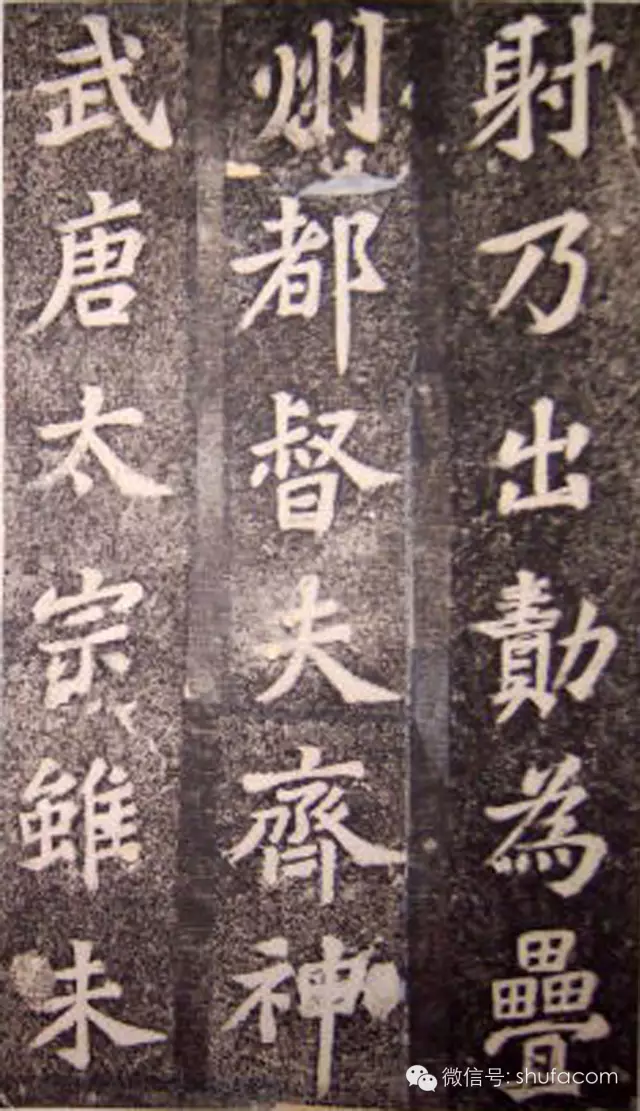 射乃出勣為疊
州都督夫齊神
武唐太宗雖未
微信号: shufacom